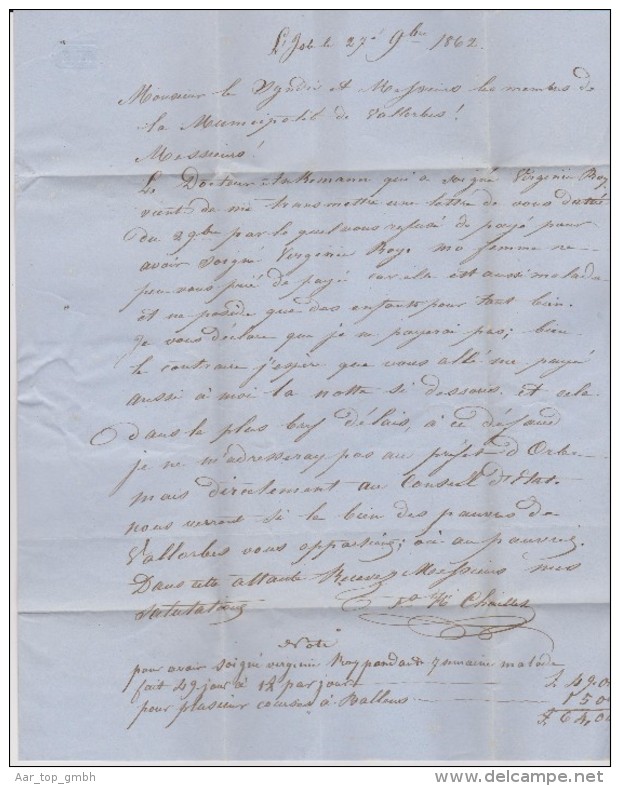 le 27e 9bre 1862.
Monsieur le Syndic et Messieurs les membres de
la Municipalité de Vallorbes!
Messieurs!
Le Docteur qui a soigné Virginie Roy
vient de me transmettre une lettre de vous datée
du 2 9bre par le quel vous refusé de payé pour
avoir soigné Virginie Roy ma femme ne
peu vous prié de payé car elle est aussi malade
et ne posède que des enfants pour tout bien.
Je vous déclare que je ne payerai pas; bien
le contraire j'espère que vous allé me payé
aussi à moi la notte si dessous. et cela
dans le plus bref délais, à ce défaud
je ne m'adresseray pas au préfet d'Orbe
mais directement au Conseil d'Etat.
nous verront si le bien des pauvres de
Vallorbes vous appartien; où au pauvres.
Dans cete attante Recevez Messieurs mes
salutations Chaillet
Note
pour avoir soigné virginie Roy pandant 7 semaine malade
fait 49 jour à 1 par jour 49,00
pour plusieur courses à Ballens 15 00
64,00
Aar_top_gmbh
www.delcampe.net